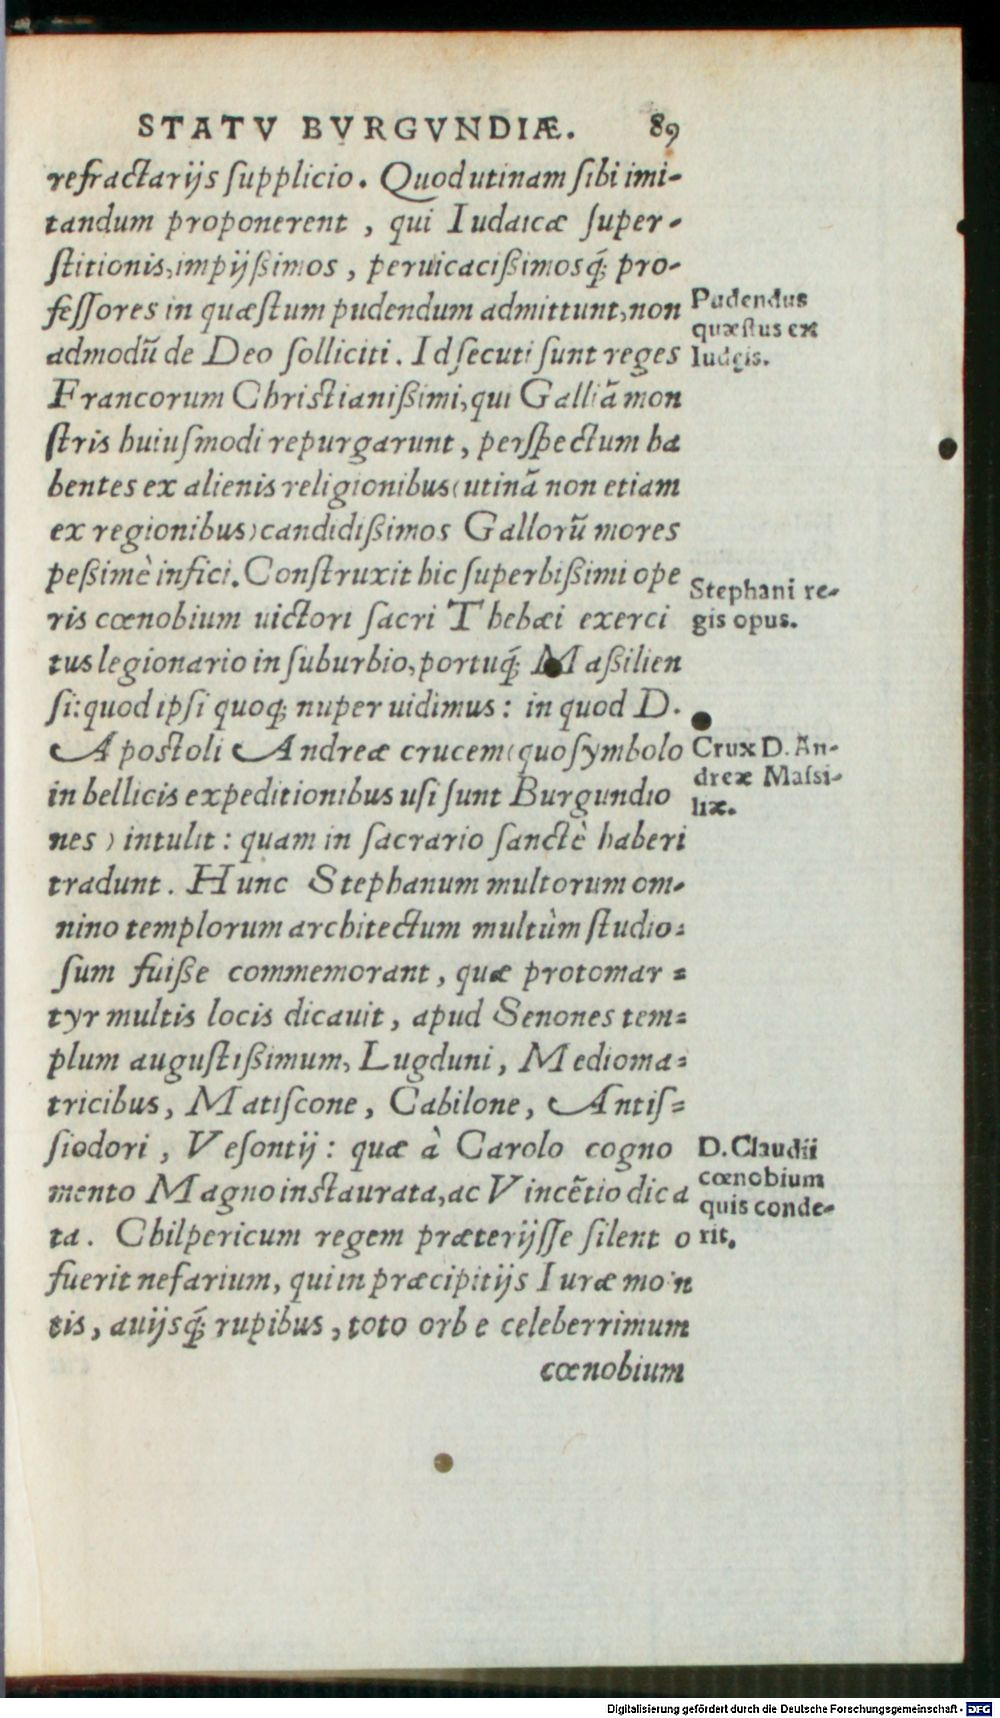 STATV BVRGVNDIÆ. 89
refractarijs ſupplicio. Quod utinam ſibi imi-
tandum proponerent, qui Iudaicæ ſuper-
ſtitionis, impijßimos, peruicacißimosq́; pro-
feſſores in quæſtum pudendum admittunt, non
admodũ de Deo ſolliciti. Id ſecuti ſunt reges
Francorum Christianißimi, qui Galliã mon
ſtris huiuſmodi repurgarunt, perſpectum ha
bentes ex alienis religionibus (utinã non etiam
ex regionibus) candidißimos Gallorũ mores
peßimè infici. Construxit hic ſuperbißimi ope
ris cœnobium uictori ſacri Thebæi exerci
tus legionario in ſuburbio, portuq́; Maßilien
ſi: quod ipſi quoq; nuper uidimus: in quod D.
Apostoli Andreæ crucem (quo ſymbolo
in bellicis expeditionibus uſi ſunt Burgundio
nes) intulit: quam in ſacrario ſanctè haberi
tradunt. Hunc Stephanum multorum om-
nino templorum architectum multùm ſtudio=
ſum fuiße commemorant, quæ protomar=
tyr multis locis dicauit, apud Senones tem=
plum auguſtißimum, Lugduni, Medioma=
tricibus, Matiſcone, Cabilone, Antiſ=
ſiodori, Veſontij: quæ à Carolo cogno
mento Magno instaurata, ac Vincẽtio dica
ta. Chilpericum regem præterijſſe ſilentio
fuerit nefarium, qui in præcipitijs Iuræ mon
tis, auijsq́; rupibus, toto orbe celeberrimum
cœnobium
Pudendus
quæſtus ex
Iudęis.
Stephani re-
gis opus.
Crux D. An-
dreæ Maſsi-
liæ.
D. Claudii
cœnobium
quis conde-
rit.
Digitalisierung gefördert durch die Deutsche Forschungsgemeinschaft - DFG